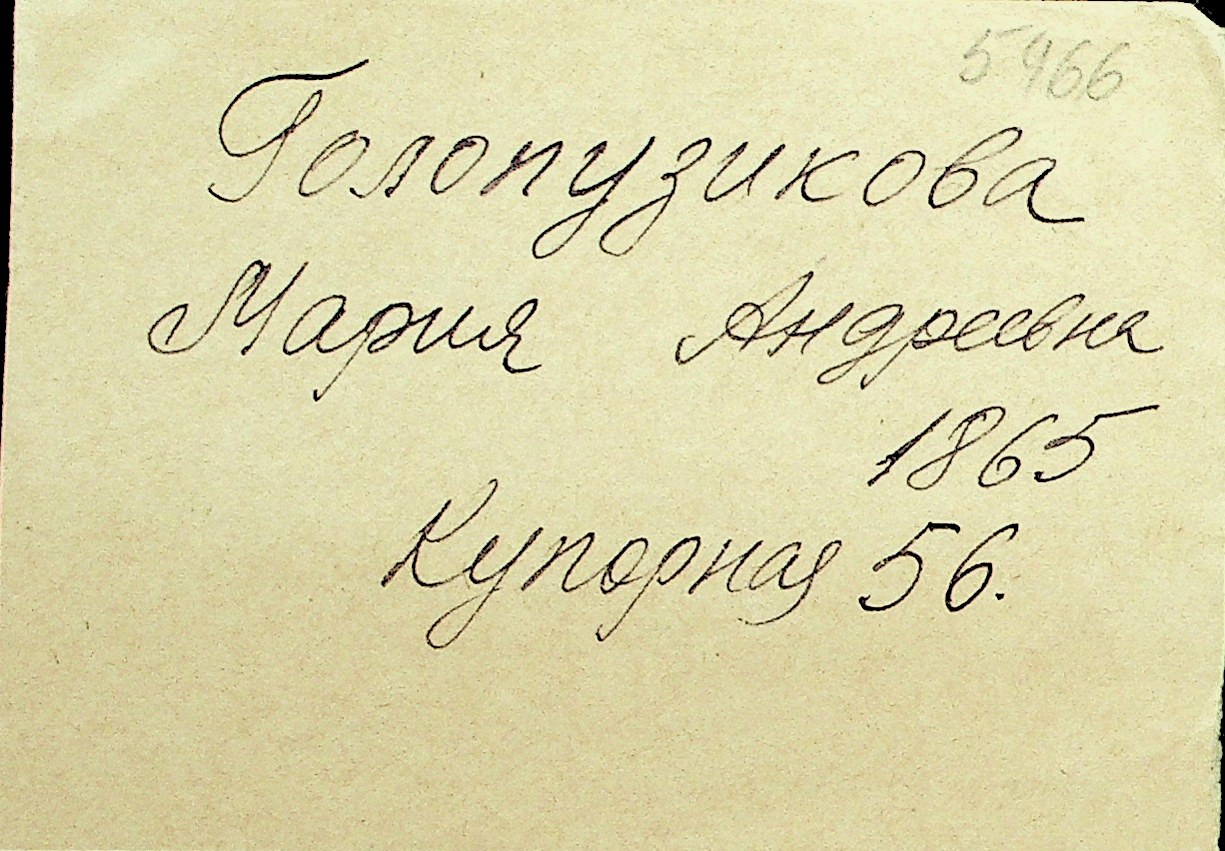 5466
Голопузикова
Мария Андреевна
1865
Купорная 56.